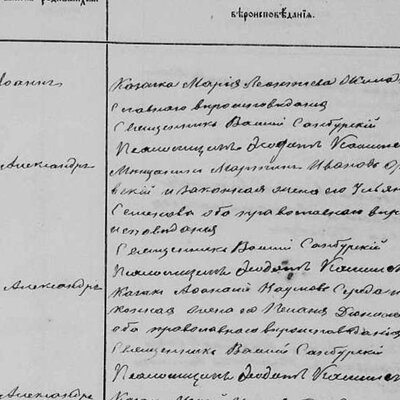 вѣроисповѣданія.
Іоаннъ
Козачка Марія Леонтіева
славнаго вѣроисповѣданія
Священникъ Василій Самбурскій
Псаломщикъ Ѳеодотъ
Александръ
Мѣщанинъ Мартинъ Ивановъ
вскій и законная жена его Ульян
Семенова оба православнаго вѣро
исповѣданія
Священникъ Василій Самбурскій
Псаломщикъ Ѳеодотъ
Александръ
Козакъ Аѳанасій Наумовъ Середа и за
конная жена его
оба православнаго вѣроисповѣданія
Священникъ Василій Самбурскій
Псаломщикъ Ѳеодотъ
Александръ